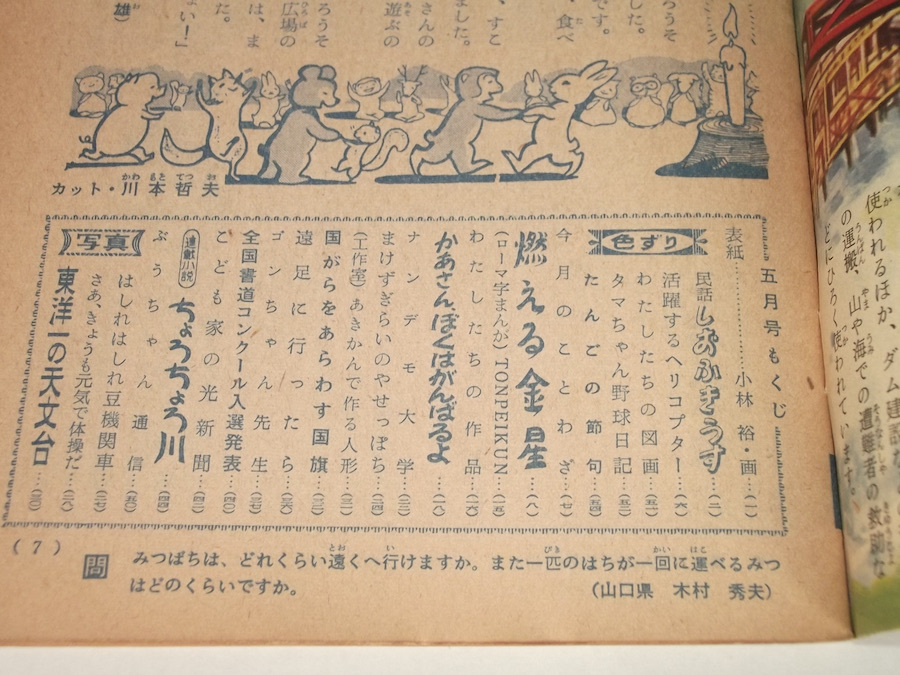 ろうそ
した。
です。
、食べ
、すこ
ました。
さんの
遊ぶの
ろうそ
広場の
は、ま
た。
い！」
雄)
カット・川本哲夫
五月号もくじ
表紙…………小林 裕・画…(一)
色ずり
民話 しおふきうす…(二)
活躍するヘリコプター…(六)
わたしたちの図画…(五一)
タマちゃん野球日記
たんごの節句…(五四)
今月のことわざ…(七)
燃える金星…(八)
(ローマ字まんが) TONPEIKUN…(一五)
わたしたちの作品…(一六)
かあさん、ぼくはがんばるよ…(一八)
ナンデモ大学
まけずぎらいのやせっぽち…(二四)
(工作室)あきかんで作る人形
国がらをあらわす国旗
遠足に行ったら
ゴンちゃん先生
全国書道コンクール入選発表…(四〇)
こども家の光新聞
連載小説 ちょろちょろ川…(四四)
ぶうちゃん通信…(五〇)
写真
はしれはしれ豆機関車…(二七)
さあ、きょうも元気で体操だ…(二八)
東洋一の天文台…(三〇)
(7)
問 みつばちは、どれくらい遠くへ行けますか。また一匹のはちが一回に運べるみつ
はどのくらいですか。 (山口県 木村 秀夫)
使われるほか、ダム建設
の運搬、山や海での遭難者の救助な
どにひろく使われています。